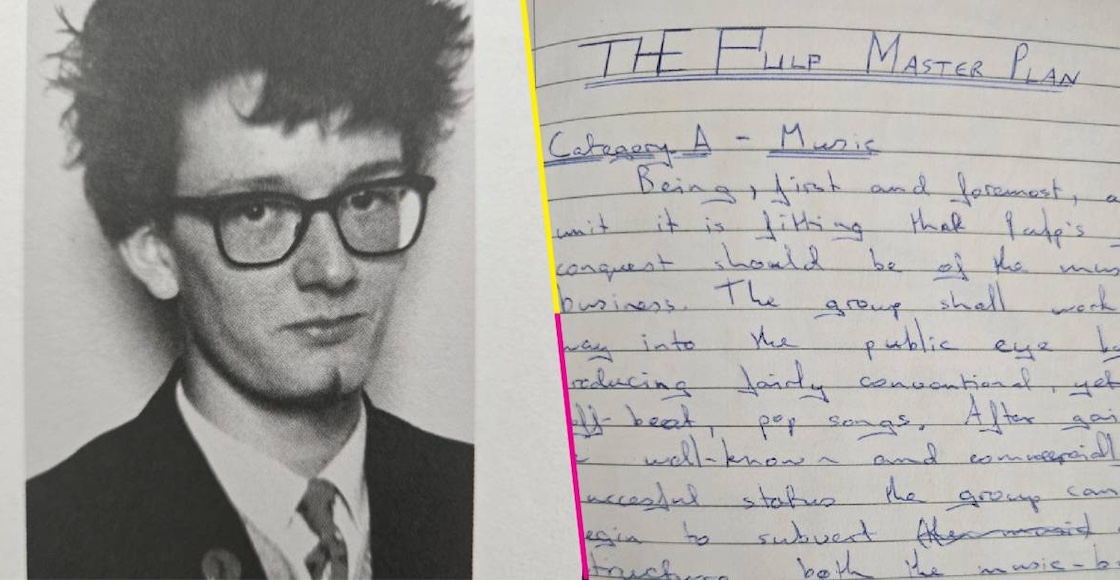 THE PULP MASTER PLAN
Category A - Music
Being, first and foremost, a
unit it is fitting that Pulp's
conquest should be of the mus
business. The group shall work
way into the public eye b
roducing fairly conventional, yet
off-beat, pop songs. After gai
well-known and commercially
uccesful status the group can
egin to subvert
tructure both the music-b